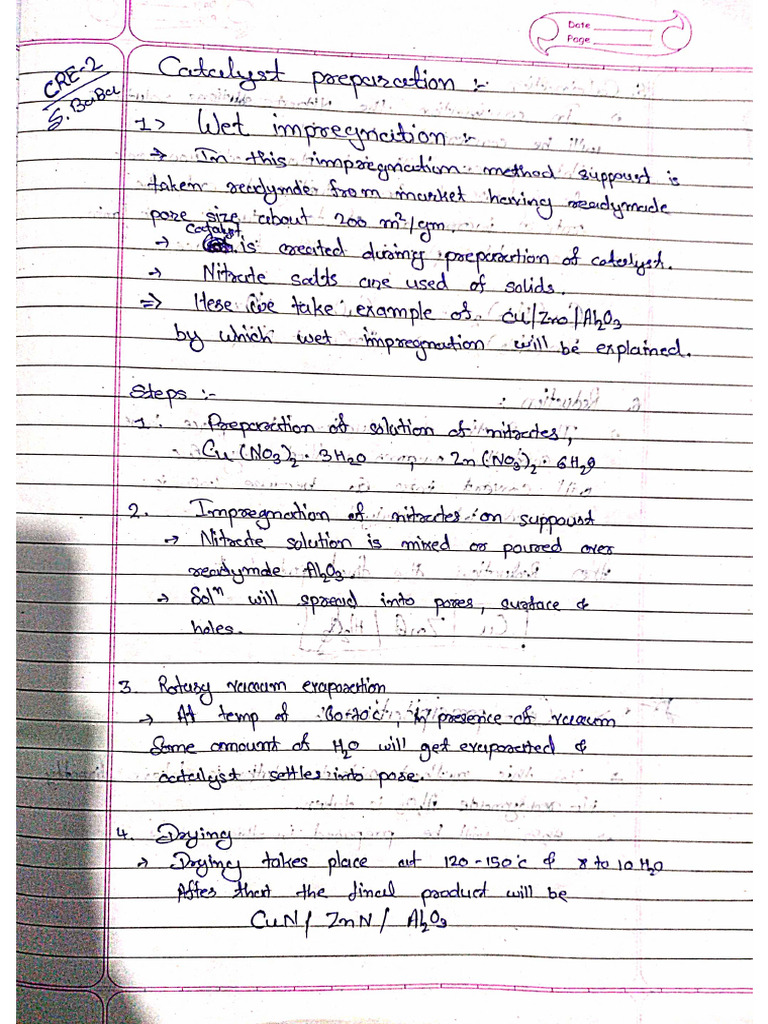 Date
Page
CRE-2
S. BaBa
Catalyst preparation :-
1> Wet impregnation :-
→ In this impregnation method suppoust is
taken readymde from market having readymade
pore size about 200 m²/gm.
catalyst
→ is created during preparation of catalyst.
→ Nitrate salts are used of solids.
⇒ Here we take example of Cu/Zno/Al₂O₃
by which wet impregnation will be explained.
Steps :-
1: Preparation of solution of nitrates,
Cu(NO₃)₂ · 3H₂O , Zn(NO₃)₂ · 6H₂O
2. Impregnation of nitrates on suppoust
→ Nitrate solution is mixed or poured over
readymde Al₂O₃.
→ Solⁿ will spread into pores, surface &
holes.
3. Rotary vacuum evaporation
→ At temp of 60-70°c, in presence of vacuum
Some amount of H₂O will get evaporated &
catalyst settles into pore.
4. Drying
→ Drying takes place at 120-150°c & 8 to 10 H₂O
After that the final product will be
CuN/ ZnN/ Al₂O₃